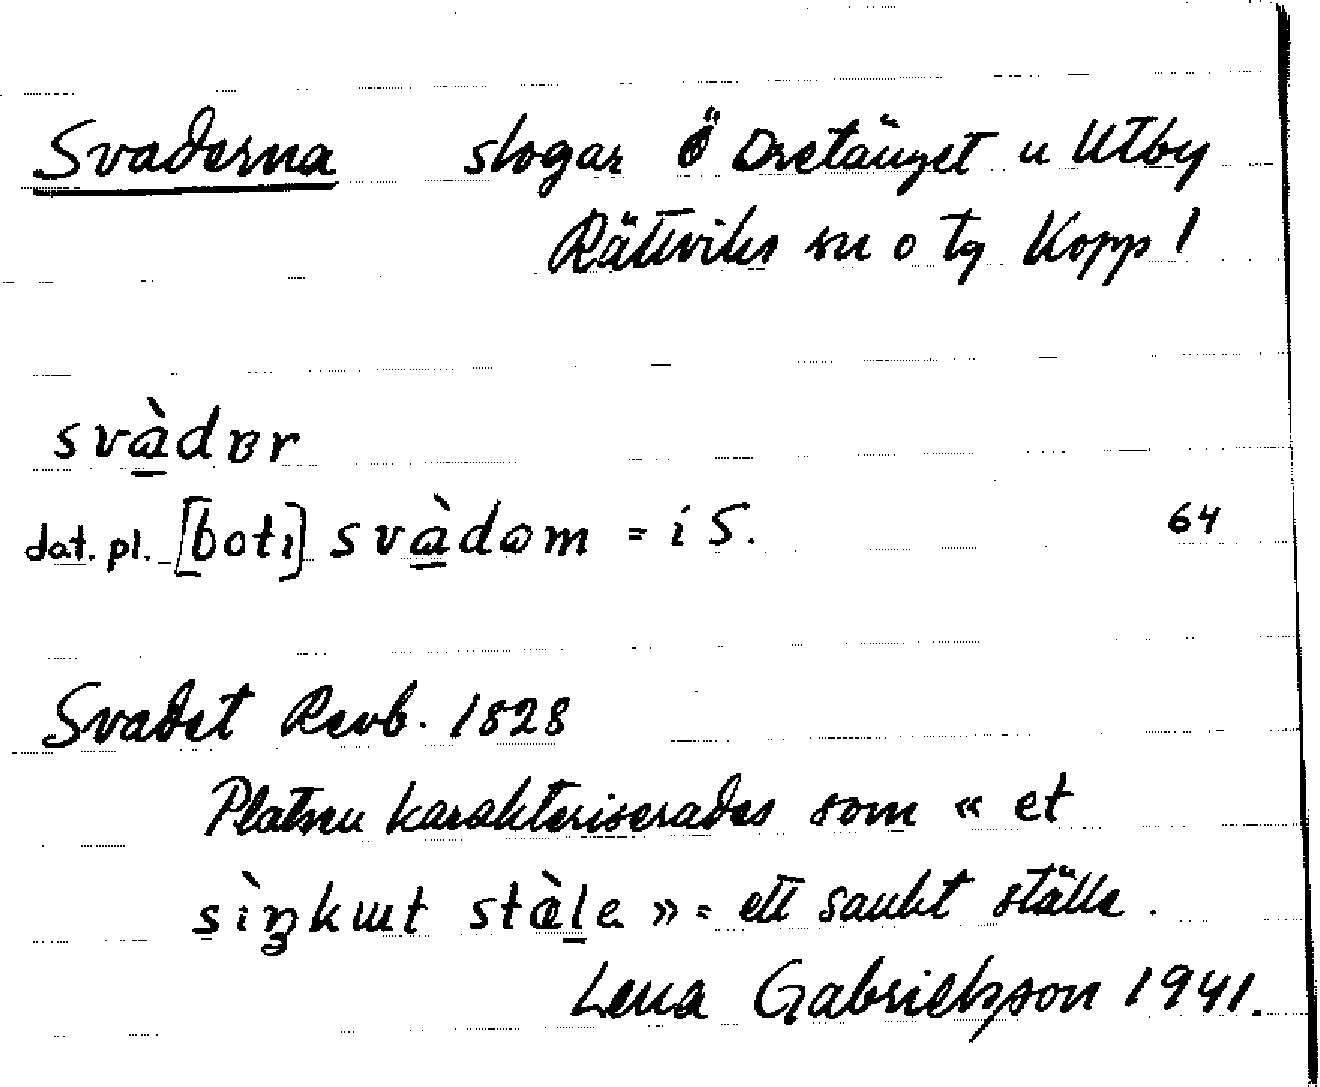 Svaderna slogar Ö Dretänget u Utby
Rättviks sn o tg Kopp l
svàdɐr
dat. pl. [botı] svàdom = i S. 64
Svadet Revb. 1828
Platsen karakteriserades som « et
sìŋkɯt stàle » = ett sankt ställe.
Lena Gabrielsson 1941.